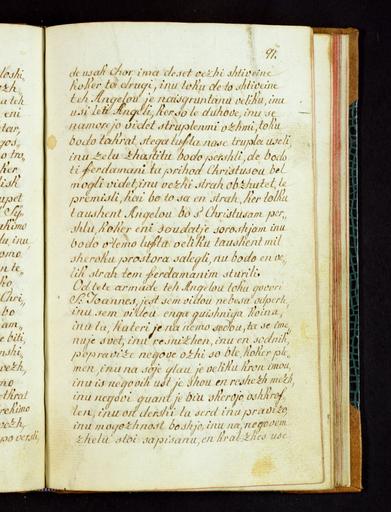 91.
de usak Chor ima deset vezhi shtiveine
koker ta drugi, inu toku de to shtiveine
teh Angelou je naisgruntanu veliku, inu
usi leti Angeli, ker so le duhove, inu se
namorejo videt s'truplenmi ozhmi, toku
bodo tahrat stega lufta nase truplu useli,
inu zelu zhastitu bodo pershli, de bodo
ti ferdamani ta prihod Christusou bol
mogli videt, inu vezhi strah obzhutet, le
premisli, kai bo to sa en strah, ker tolku
taushent Angelou bo s' Christusam per-
shlu, koker eni soudatje soroshjam inu
bodo odemo lufta veliku taushent mil
sheroku prostora salegli, nu bodo en ve-
lik strah tem ferdamanim sturili.
Od tete armade teh Angelou toku govori
S: Joannes, jest sem vidou nebesa odperte,
inu sem vidou enga guishniga koina,
inu ta, kateri je na nemo sedou, ta se ime-
nuje svet, inu resnizhen, inu en sodnik,
popravize negove ozhi so ble, koker pla-
men, inu na soje glau je veliku kron imou,
inu is negovih ust je shou en reshezh mezh,
inu negovi quant je biu skervjo oshkrof-
len, inu on dershi ta serd inu pravizo,
inu mogozhnost boshjo, inu na, negovem
zhelu stoi sapisanu, en kral zhes use